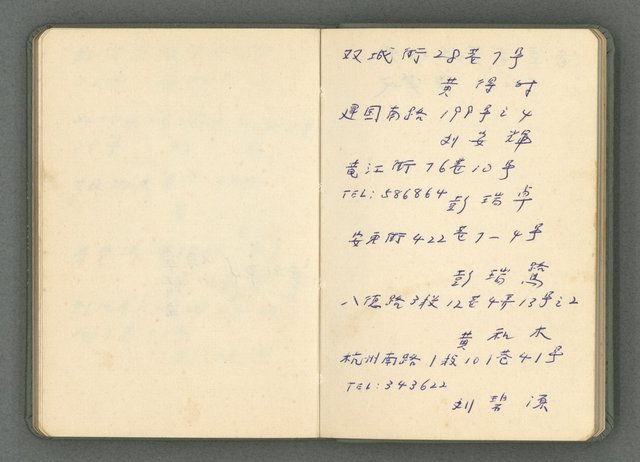 双城街28巷7号
黄得时
建国南路199号之4
刘安輝
竜江街76巷10号
TEL:586864
彭瑞卓
安東街422巷7-4号
彭瑞鷺
八德路3段12巷4弄13号之2
黄和木
杭州南路1段101巷41号
TEL:343622
刘碧